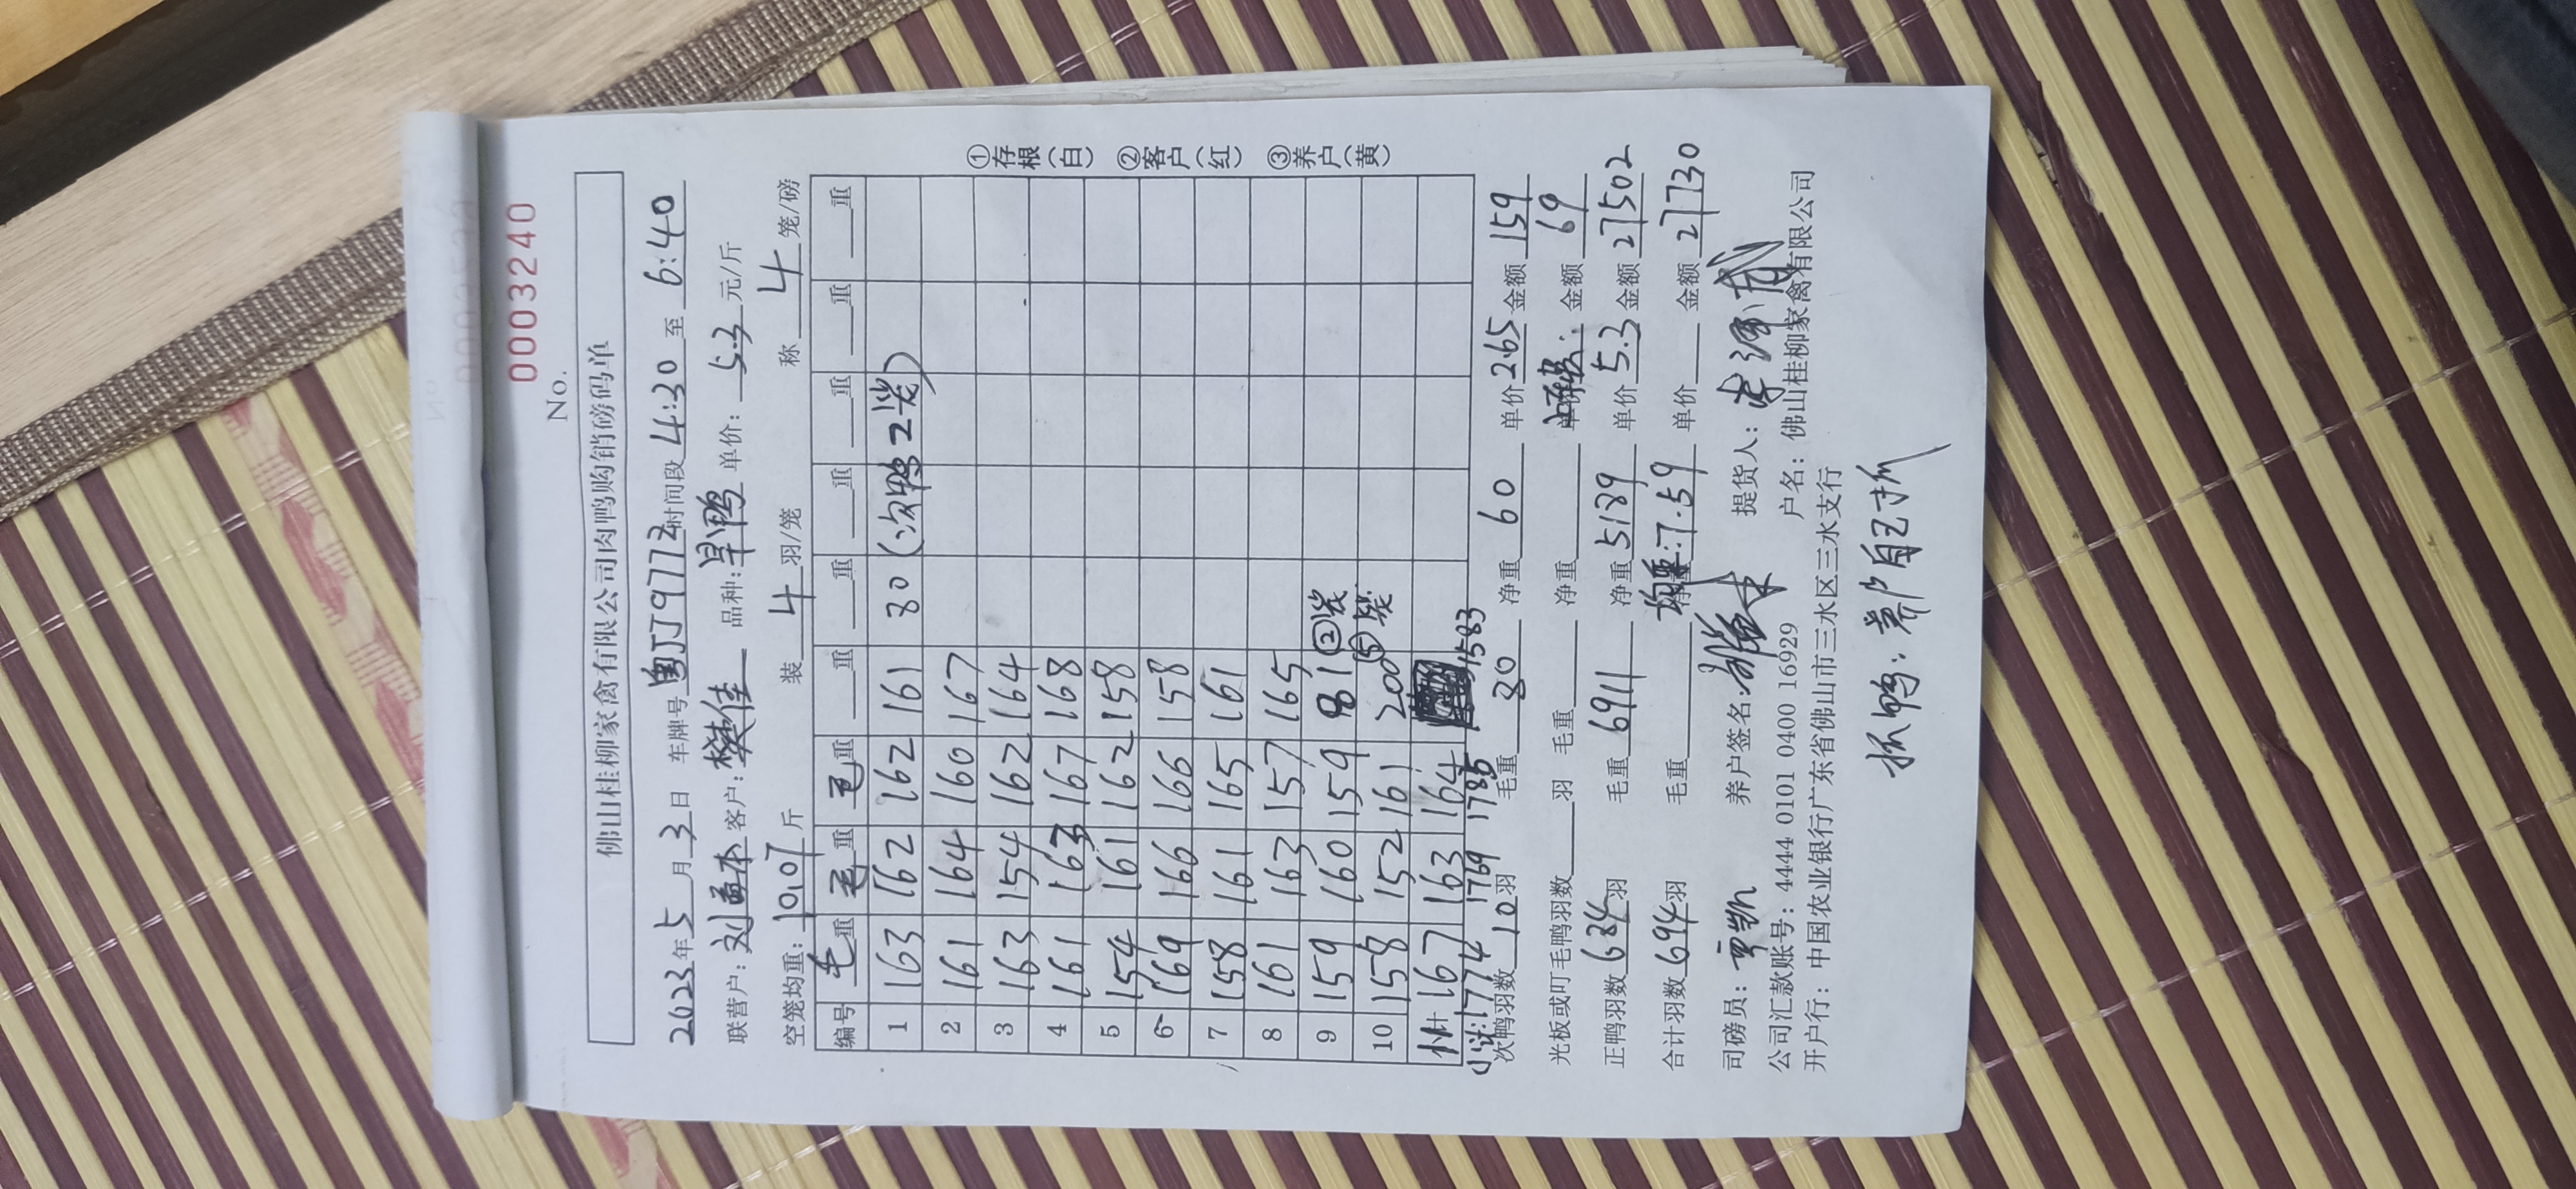 No. 0003240
佛山桂柳家禽有限公司肉鸭购销磅码单
2023年5月3日 车牌号 粤JJ9773 时间段 4:30 至 6:40
联营户: 刘孟本 客户: 樊佳 品种: 旱鸭 单价: 5.3 元/斤
空笼均重: 10.07 斤 装 4 羽/笼 称 4 笼/磅
编号 毛重 毛重 毛重 重 重 重 重 重 重
1 163 162 162 161 80 (次鸭2笼)
2 161 164 160 167
3 163 154 162 164
4 161 163 167 168
5 154 161 162 158
6 169 166 166 158
7 158 161 165 161
8 161 163 157 165
9 159 160 159 81 ②笼
10 158 152 161 200 ⑤笼
11 167 163 164
小计: 1774 1769 1785 1583
次鸭羽数 10 羽 毛重 80 净重 60 单价 2.65 金额 159
光板或叮毛鸭羽数 羽 毛重 净重 金额 69
正鸭羽数 684 羽 毛重 6911 净重 5189 单价 5.3 金额 27502
合计羽数 694 羽 毛重 均重: 7.59 单价 金额 27730
司磅员: 养户签名: 提货人:
公司汇款账号: 4444 0101 0400 16929 户名: 佛山桂柳家禽有限公司
开户行: 中国农业银行广东省佛山市三水区三水支行
抓鸭: 养户自抓
①存根(白) ②客户(红) ③养户(黄)